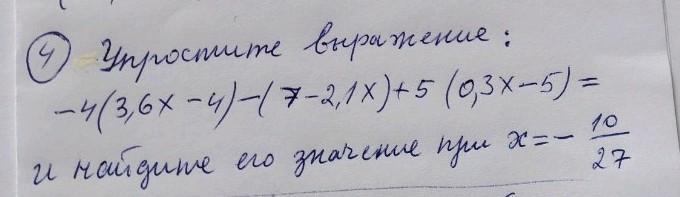 4 Упростите выражение:
-4(3,6x-4)-(7-2,1x)+5(0,3x-5)=
и найдите его значение при x=-10/27